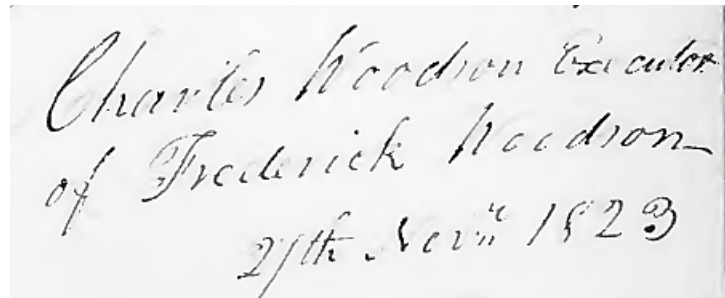 Charles Woodson Executor
of Frederick Woodson
27th Novr 1823